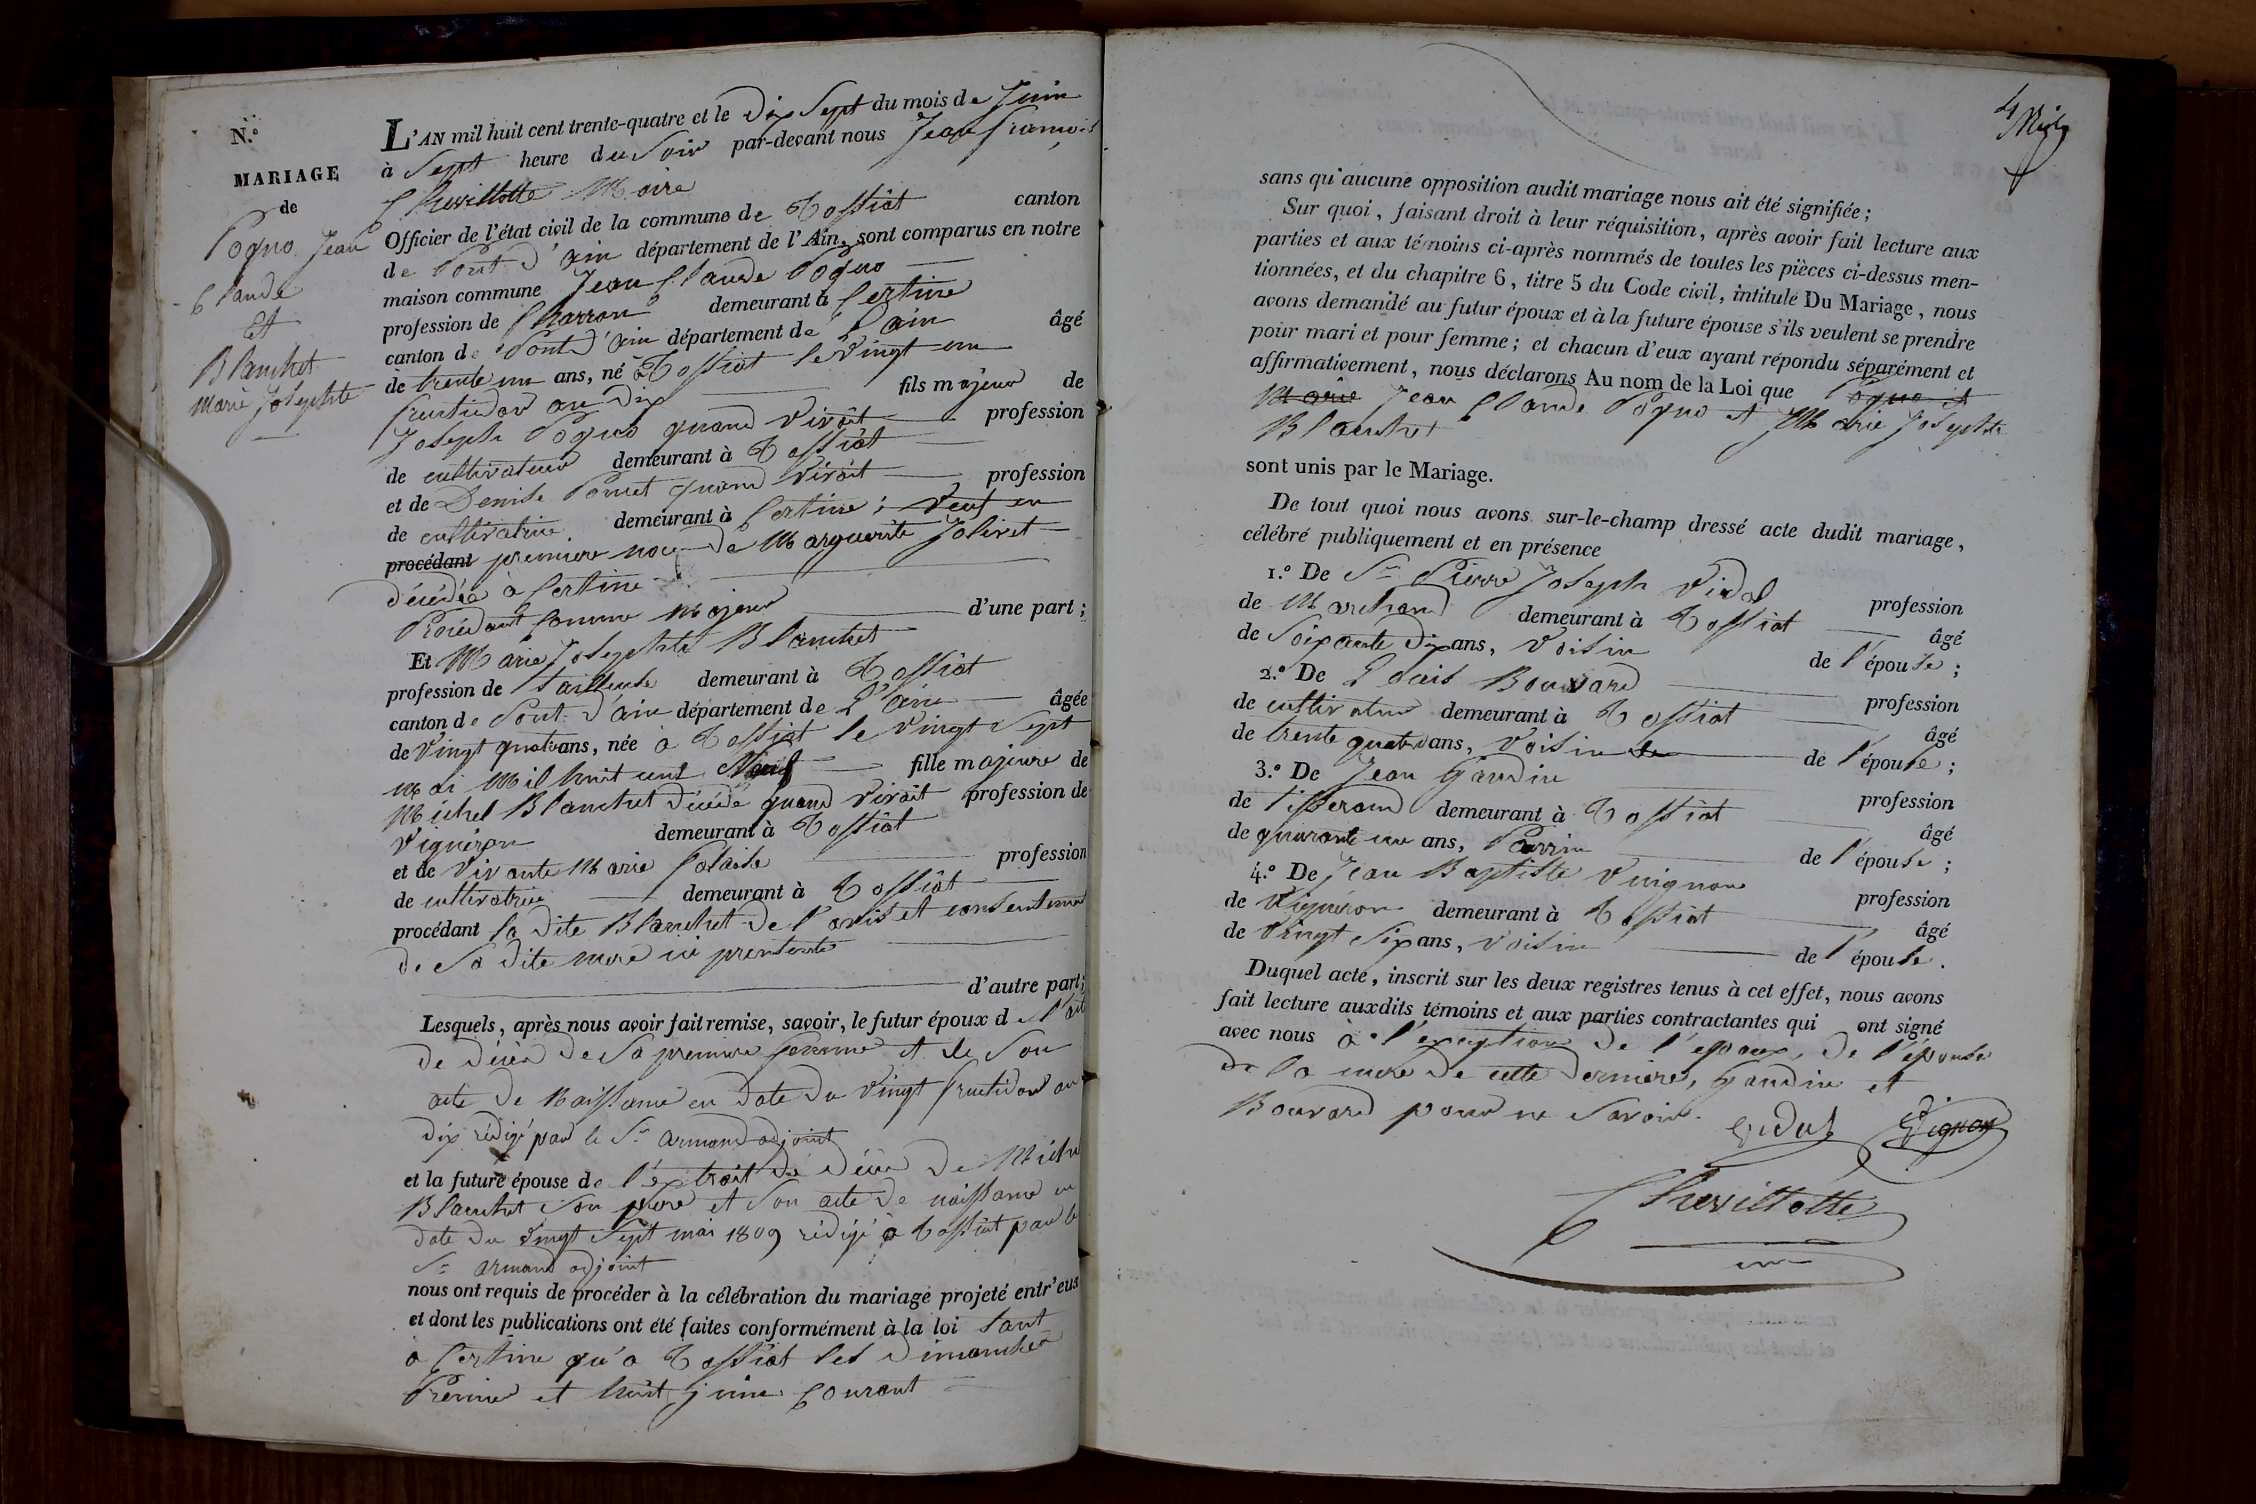 N.°
MARIAGE
de
Pogno Jean
Claude
Et
Blanchet
Marie Josephte
L'AN mil huit cent trente-quatre et le dix Sept du mois de Juin
à Sept heure du Soir par-devant nous Jean François
Chevillotte Maire
Officier de l'état civil de la commune de Tossiat canton
de Pont d'ain département de l'Ain, sont comparus en notre
maison commune Jean Claude Pogno
profession de Charron demeurant à Certine
canton de Pont d'ain département de L'ain âgé
de trente un ans, né à Tossiat le vingt un
fructidor an dix fils majeur de
Joseph Pogno quand vivait profession
de cultivateur demeurant à Tossiat
et de Denise Poncet quand vivait profession
de cultivatrice demeurant à Certine ; veuf en
procédant premiere noce de Marguerite Jolivet
décédée à Certine
Procédant comme Majeur d'une part ;
Et Marie Josephte Blanchet
profession de tailleuse demeurant à Tossiat
canton de Pont d'ain département de L'ain âgée
de vingt quatre ans, née à Tossiat le vingt Sept
mai Mil huit cent Neuf fille majeure de
Michel Blanchet décédé quand vivait profession de
Vigneron demeurant à Tossiat
et de Vivante Marie profession
de cultivatrice demeurant à Tossiat
procédant la dite Blanchet de l'avis et consentement
de Sa dite mere ici presente
d'autre part ;
Lesquels, après nous avoir fait remise, savoir, le futur époux de l'acte
de décès de Sa premiere femme et de Son
acte de Naissance en date du vingt fructidor an
dix rédigé par le Sr armand adjoint
et la future épouse de l'extrait de décès de Michel
Blanchet Son pere et Son acte de naissance en
date du vingt Sept mai 1809 rédigé à Tossiat par le
Sr armand adjoint
nous ont requis de procéder à la célébration du mariage projeté entr'eux
et dont les publications ont été faites conformément à la loi tant
à Certine qu'à Tossiat les dimanches
Premier et huit juin Courant
4
sans qu'aucune opposition audit mariage nous ait été signifiée ;
Sur quoi, faisant droit à leur réquisition, après avoir fait lecture aux
parties et aux témoins ci-après nommés de toutes les pièces ci-dessus men-
tionnées, et du chapitre 6, titre 5 du Code civil, intitulé Du Mariage, nous
avons demandé au futur époux et à la future épouse s'ils veulent se prendre
pour mari et pour femme ; et chacun d'eux ayant répondu séparément et
affirmativement, nous déclarons Au nom de la Loi que Pogno et
Marie Jean Claude Pogno et Marie Josephte
Blanchet
sont unis par le Mariage.
De tout quoi nous avons sur-le-champ dressé acte dudit mariage,
célébré publiquement et en présence
1.° De Sr Pierre Joseph Vidal profession
de Marchand demeurant à Tossiat âgé
de Soixante dix ans, voisin de l'épouse ;
2.° De Louis Bouvard profession
de cultivateur demeurant à Tossiat âgé
de trente quatre ans, voisin de de l'épouse ;
3.° De Jean Gaudin profession
de tisserand demeurant à Tossiat âgé
de quarante un ans, de l'épouse ;
4.° De Jean Baptiste Vuignon profession
de Vigneron demeurant à Tossiat âgé
de vingt Six ans, voisin de l'épouse.
Duquel acte, inscrit sur les deux registres tenus à cet effet, nous avons
fait lecture auxdits témoins et aux parties contractantes qui ont signé
avec nous à l'exception de l'epoux, de l'épouse
de la mere de cette derniere, Gaudin et
Bouvard pour ne Savoir.
Vidal Vignon
Chevillotte